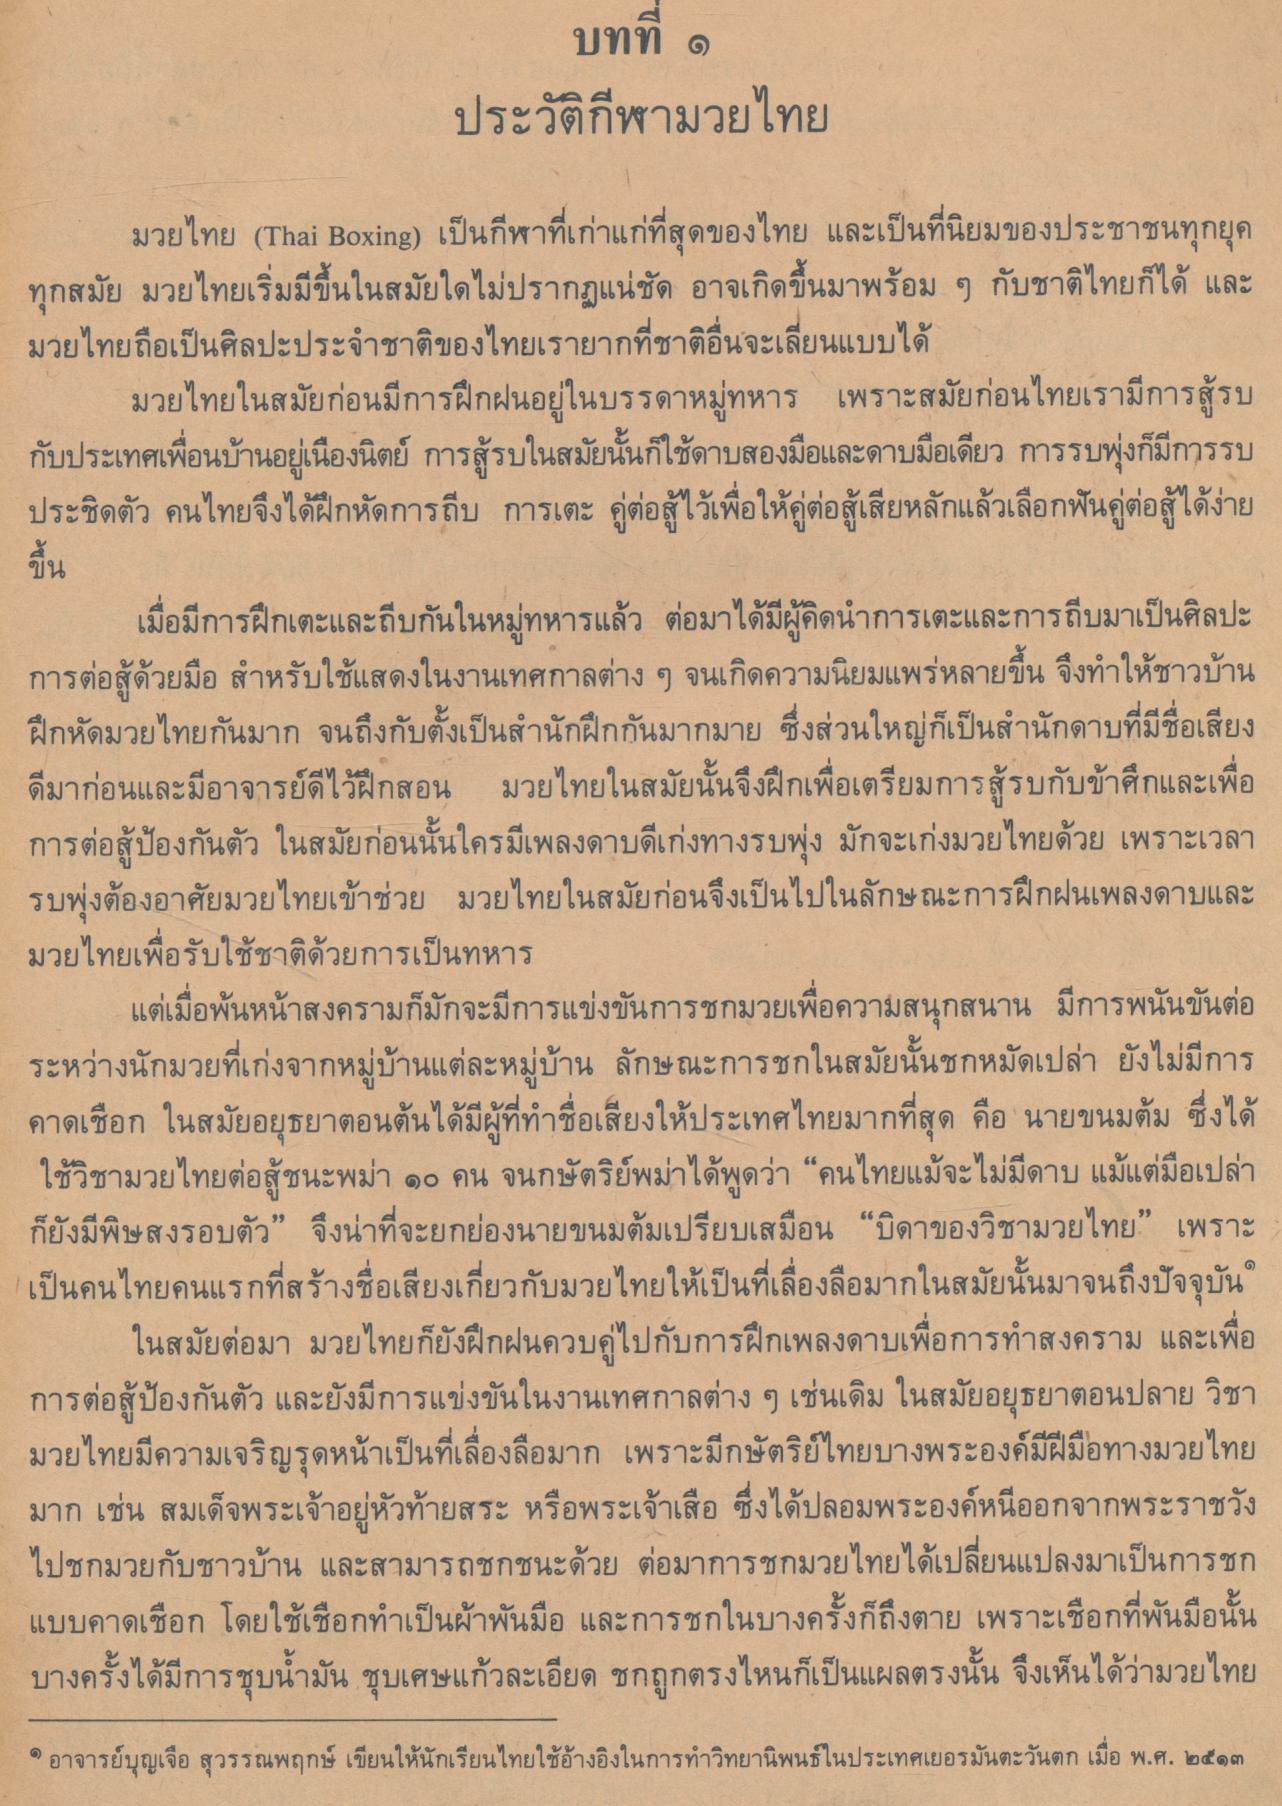 บทที่ ๑
ประวัติกีฬามวยไทย
มวยไทย (Thai Boxing) เป็นกีฬาที่เก่าแก่ที่สุดของไทย และเป็นที่นิยมของประชาชนทุกยุค
ทุกสมัย มวยไทยเริ่มมีขึ้นในสมัยใดไม่ปรากฏแน่ชัด อาจเกิดขึ้นมาพร้อม ๆ กับชาติไทยก็ได้ และ
มวยไทยถือเป็นศิลปะประจำชาติของไทยเรายากที่ชาติอื่นจะเลียนแบบได้
มวยไทยในสมัยก่อนมีการฝึกฝนอยู่ในบรรดาหมู่ทหาร เพราะสมัยก่อนไทยเรามีการสู้รบ
กับประเทศเพื่อนบ้านอยู่เนืองนิตย์ การสู้รบในสมัยนั้นก็ใช้ดาบสองมือและดาบมือเดียว การรบพุ่งก็มีการรบ
ประชิดตัว คนไทยจึงได้ฝึกหัดการถีบ การเตะ คู่ต่อสู้ไว้เพื่อให้คู่ต่อสู้เสียหลักแล้วเลือกฟันคู่ต่อสู้ได้ง่าย
ขึ้น
เมื่อมีการฝึกเตะและถีบกันในหมู่ทหารแล้ว ต่อมาได้มีผู้คิดนำการเตะและการถีบมาเป็นศิลปะ
การต่อสู้ด้วยมือ สำหรับใช้แสดงในงานเทศกาลต่าง ๆ จนเกิดความนิยมแพร่หลายขึ้น จึงทำให้ชาวบ้าน
ฝึกหัดมวยไทยกันมาก จนถึงกับตั้งเป็นสำนักฝึกกันมากมาย ซึ่งส่วนใหญ่ก็เป็นสำนักดาบที่มีชื่อเสียง
ดีมาก่อนและมีอาจารย์ดีไว้ฝึกสอน มวยไทยในสมัยนั้นจึงฝึกเพื่อเตรียมการสู้รบกับข้าศึกและเพื่อ
การต่อสู้ป้องกันตัว ในสมัยก่อนนั้นใครมีเพลงดาบดีเก่งทางรบพุ่ง มักจะเก่งมวยไทยด้วย เพราะเวลา
รบพุ่งต้องอาศัยมวยไทยเข้าช่วย มวยไทยในสมัยก่อนจึงเป็นไปในลักษณะการฝึกฝนเพลงดาบและ
มวยไทยเพื่อรับใช้ชาติด้วยการเป็นทหาร
แต่เมื่อพ้นหน้าสงครามก็มักจะมีการแข่งขันการชกมวยเพื่อความสนุกสนาน มีการพนันขันต่อ
ระหว่างนักมวยที่เก่งจากหมู่บ้านแต่ละหมู่บ้าน ลักษณะการชกในสมัยนั้นชกหมัดเปล่า ยังไม่มีการ
คาดเชือก ในสมัยอยุธยาตอนต้นได้มีผู้ที่ทำชื่อเสียงให้ประเทศไทยมากที่สุด คือ นายขนมต้ม ซึ่งได้
ใช้วิชามวยไทยต่อสู้ชนะพม่า ๑๐ คน จนกษัตริย์พม่าได้พูดว่า “คนไทยแม้จะไม่มีดาบ แม้แต่มือเปล่า
ก็ยังมีพิษสงรอบตัว” จึงน่าที่จะยกย่องนายขนมต้มเปรียบเสมือน “บิดาของวิชามวยไทย” เพราะ
เป็นคนไทยคนแรกที่สร้างชื่อเสียงเกี่ยวกับมวยไทยให้เป็นที่เลื่องลือมากในสมัยนั้นมาจนถึงปัจจุบัน๑
ในสมัยต่อมา มวยไทยก็ยังฝึกฝนควบคู่ไปกับการฝึกเพลงดาบเพื่อการทำสงคราม และเพื่อ
การต่อสู้ป้องกันตัว และยังมีการแข่งขันในงานเทศกาลต่าง ๆ เช่นเดิม ในสมัยอยุธยาตอนปลาย วิชา
มวยไทยมีความเจริญรุดหน้าเป็นที่เลื่องลือมาก เพราะมีกษัตริย์ไทยบางพระองค์มีฝีมือทางมวยไทย
มาก เช่น สมเด็จพระเจ้าอยู่หัวท้ายสระ หรือพระเจ้าเสือ ซึ่งได้ปลอมพระองค์หนีออกจากพระราชวัง
ไปชกมวยกับชาวบ้าน และสามารถชกชนะด้วย ต่อมาการชกมวยไทยได้เปลี่ยนแปลงมาเป็นการชก
แบบคาดเชือก โดยใช้เชือกทำเป็นผ้าพันมือ และการชกในบางครั้งก็ถึงตาย เพราะเชือกที่พันมือนั้น
บางครั้งได้มีการชุบน้ำมัน ชุบเศษแก้วละเอียด ชกถูกตรงไหนก็เป็นแผลตรงนั้น จึงเห็นได้ว่ามวยไทย
๑ อาจารย์บุญเจือ สุวรรณพฤกษ์ เขียนให้นักเรียนไทยใช้อ้างอิงในการทำวิทยานิพนธ์ในประเทศเยอรมันตะวันตก เมื่อ พ.ศ. ๒๕๑๓